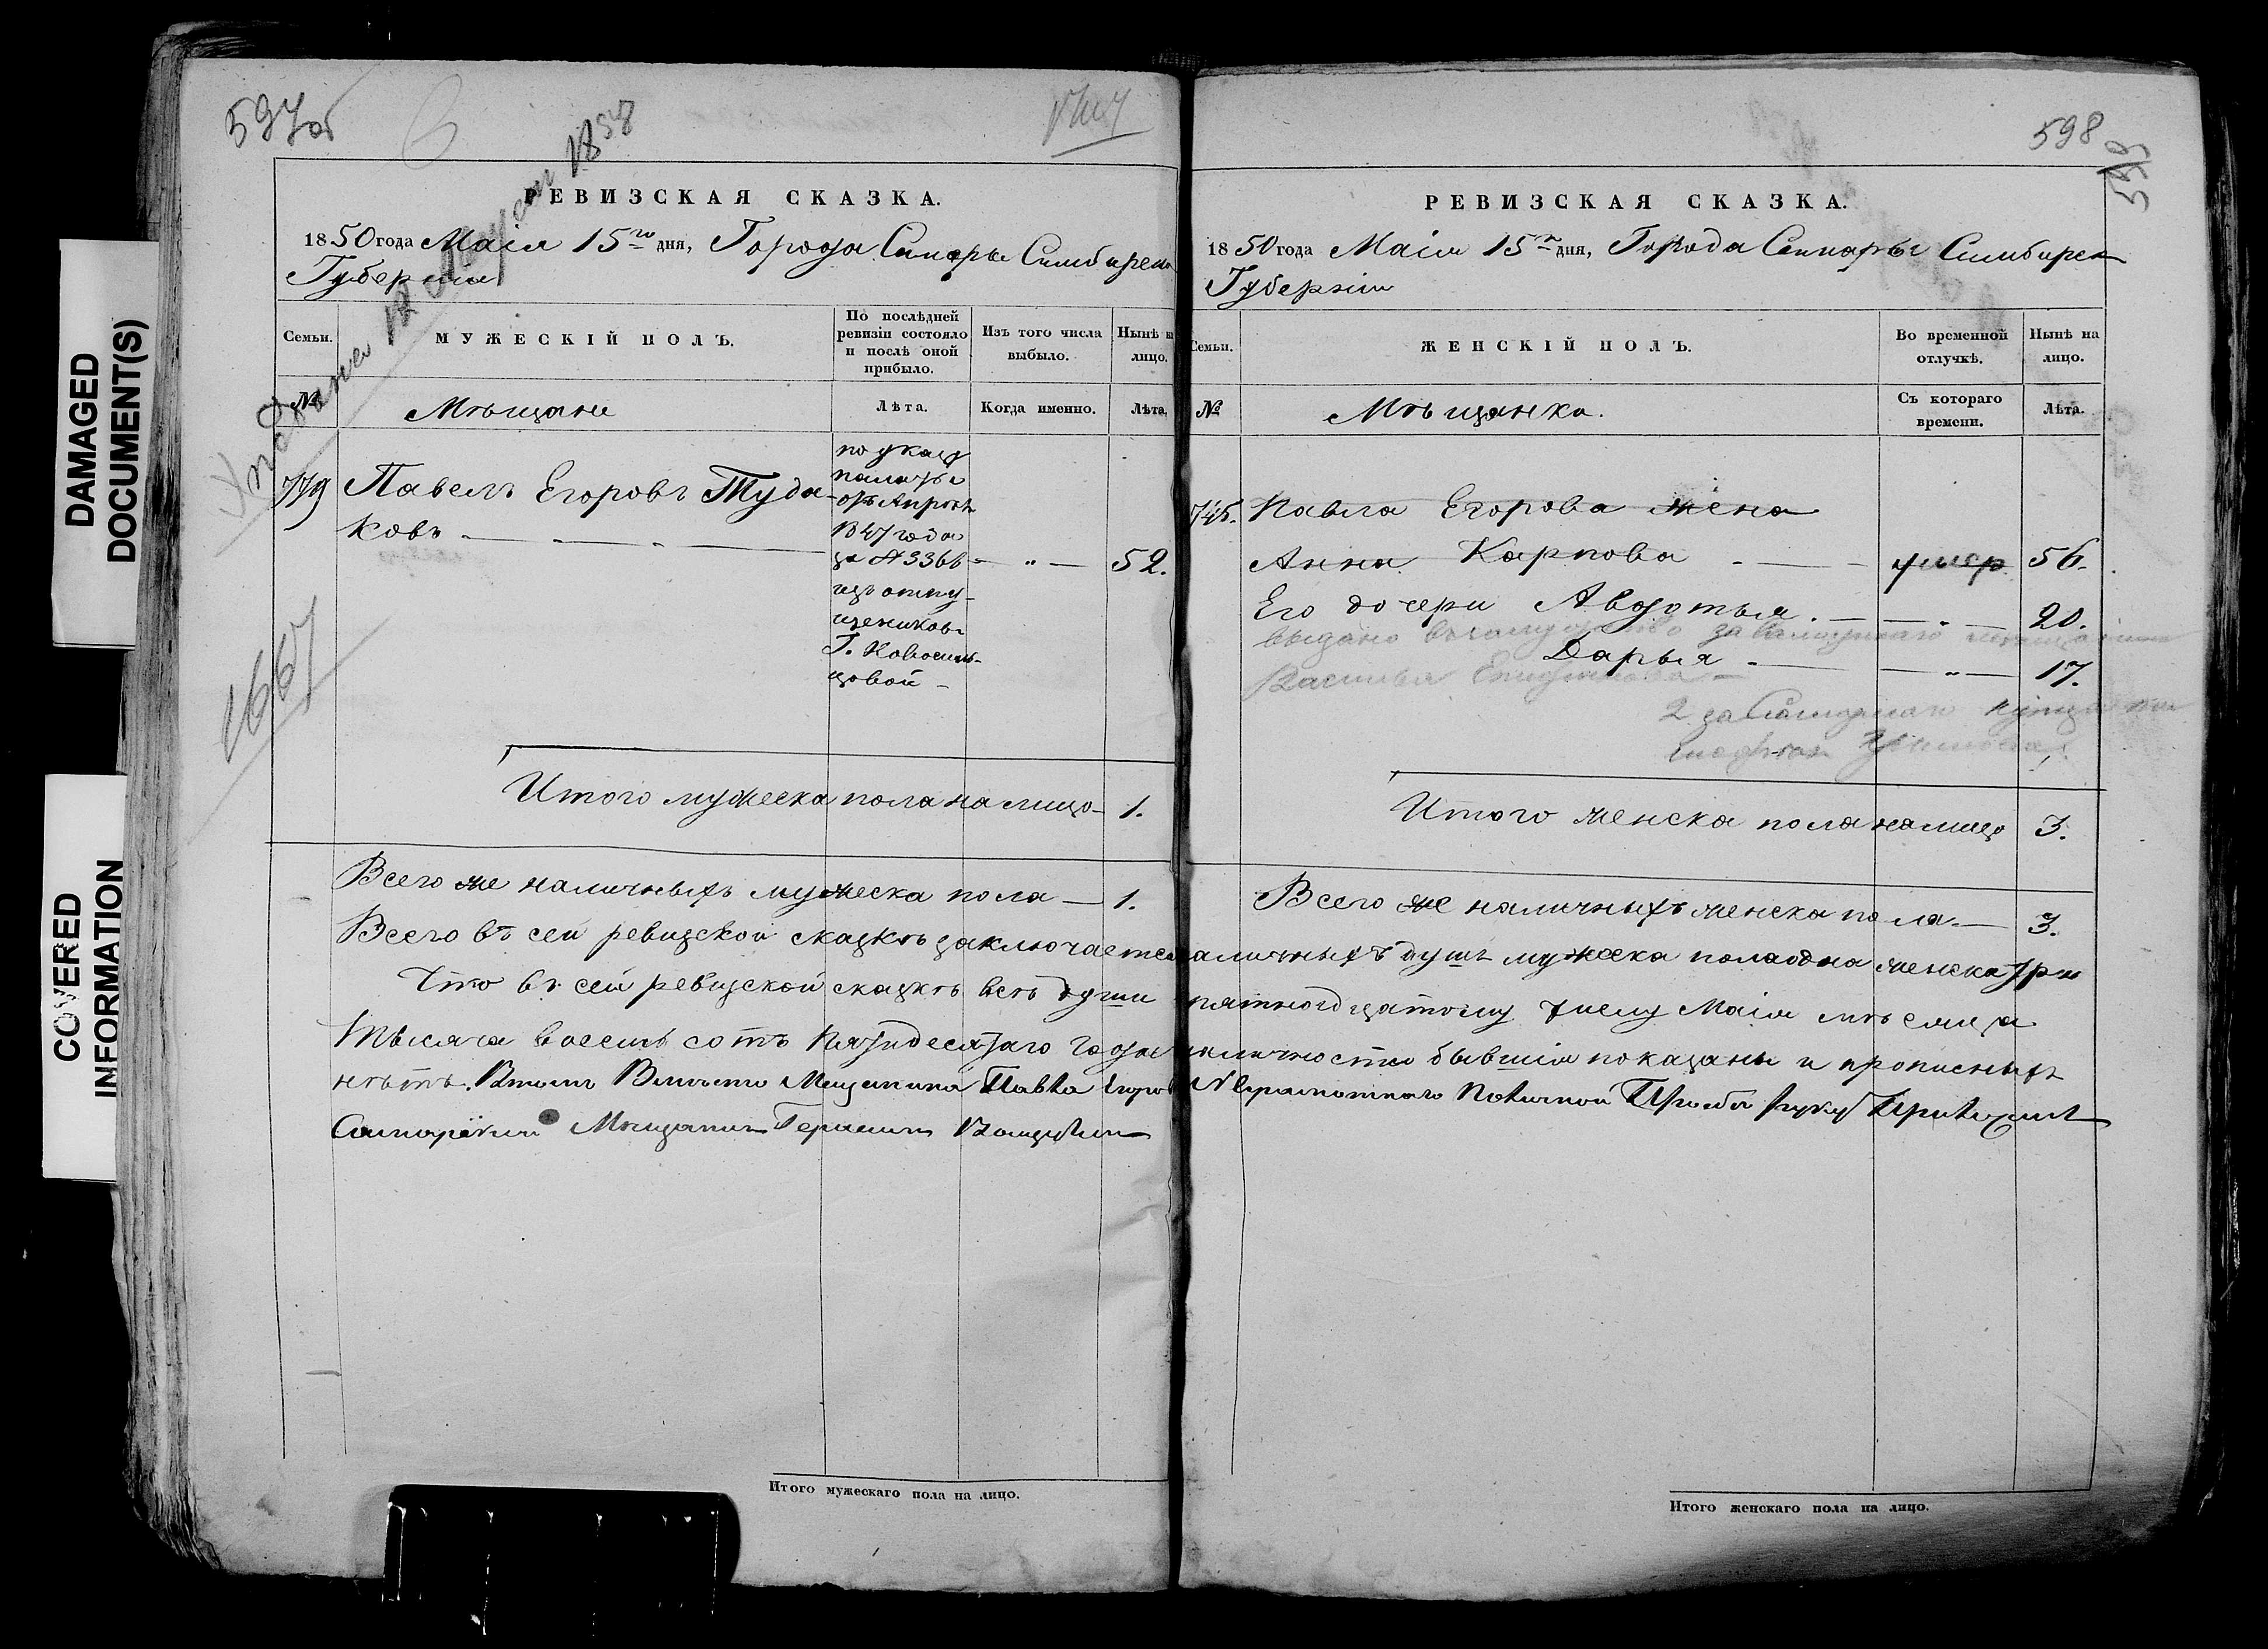 DAMAGED
DOCUMENT(S)
COVERED
INFORMATION
597об
РЕВИЗСКАЯ СКАЗКА.
1850 года Маія 15го дня, Города Самары Симбирск
Губерніи
Семьи.
МУЖЕСКІЙ ПОЛЪ.
По послѣдней ревизіи состояло и послѣ оной прибыло.
Изъ того числа выбыло.
Нынѣ н лицо.
№
Мѣщане
Лѣта.
Когда именно.
Лѣта.
779
Павелъ Егоровъ Туда-
ковъ
52.
по указу
палаты
отъ Апрѣля
1847 года
за № 3366
изъ отпу-
щениковъ
Г. Новосиль-
цовой
1667
Итого мужеска пола на лицо 1.
Всего же наличныхъ мужеска пола — 1.
Итого мужескаго пола на лицо.
598
598
РЕВИЗСКАЯ СКАЗКА.
1850 года Маія 15го дня, Города Самары Симбирск
Губерніи
Семьи.
ЖЕНСКІЙ ПОЛЪ.
Во временной отлучкѣ.
Нынѣ на лицо.
№
Мѣщанка.
Съ котораго времени.
Лѣта.
745. Павла Егорова жена
Анна Карпова — умер 56.
Его дочери Авдотья. — 20.
выдано въ замужство за Самарскаго мещанина
Дарья — 17.
2 за Самарскаго
Итого женска пола на лицо 3.
Всего же наличныхъ женска пола — 3.
Всего въ сей ревизской сказкѣ заключается наличныхъ душъ мужеска пола одна женска три
Что въ сей ревизской сказкѣ всѣ души пятнодцатому числу Маія мѣсяца
тысяча восемь сотъ пятидесятаго года наличности бывшія показаны и прописныхъ
нѣтъ. Вмѣсто Мещанина Павла Егоров Неграмотнаго поличной Прозбы руку Приложилъ
Самарскій Мещанин Герасим
Итого женскаго пола на лицо.